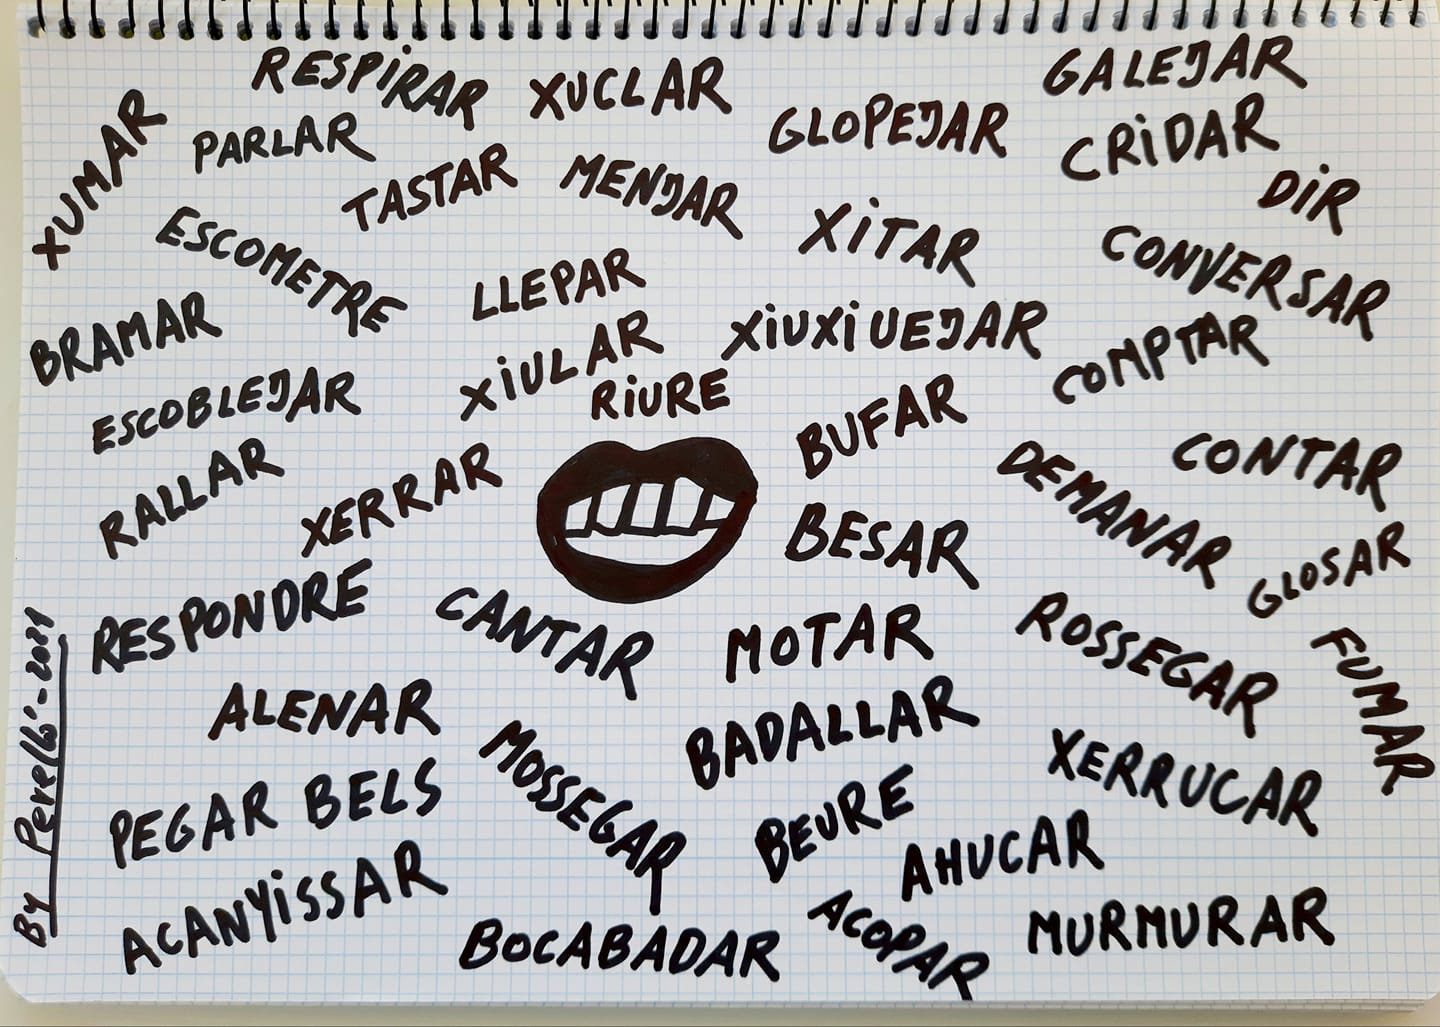 RESPIRAR
XUCLAR
GALEJAR
XUMAR
PARLAR
GLOPEJAR
CRIDAR
TASTAR
MENJAR
DIR
ESCOMETRE
XITAR
CONVERSAR
LLEPAR
BRAMAR
XIULAR
XIUXIUEJAR
COMPTAR
ESCOBLEJAR
RIURE
BUFAR
CONTAR
RALLAR
XERRAR
DEMANAR
BESAR
GLOSAR
RESPONDRE
CANTAR
MOTAR
ROSSEGAR
FUMAR
ALENAR
MOSSEGAR
BADALLAR
XERRUCAR
PEGAR BELS
BEURE
AHUCAR
ACANYISSAR
BOCABADAR
ACOPAR
MURMURAR
By Perelló-2021